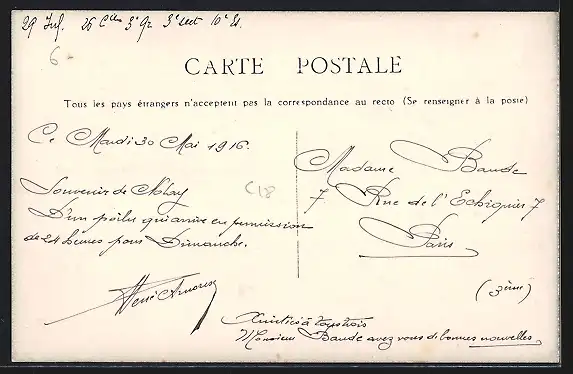 29 Inf. 26 Cie 3e 3e sect 10e Es.
6
CARTE POSTALE
Tous les pays étrangers n'acceptent pas la correspondance au recto (Se renseigner à la poste)
Ce Mardi 30 Mai 1916.
Souvenir de Nolay
D'un poilu qui arrive en permission
de 24 heures pour Dimanche.
René
C18
Madame Baude
7. Rue de l'Echiquier 7
Paris
(3ème)
Amitiés à tous trois
Monsieur Baude avez vous de bonnes nouvelles.